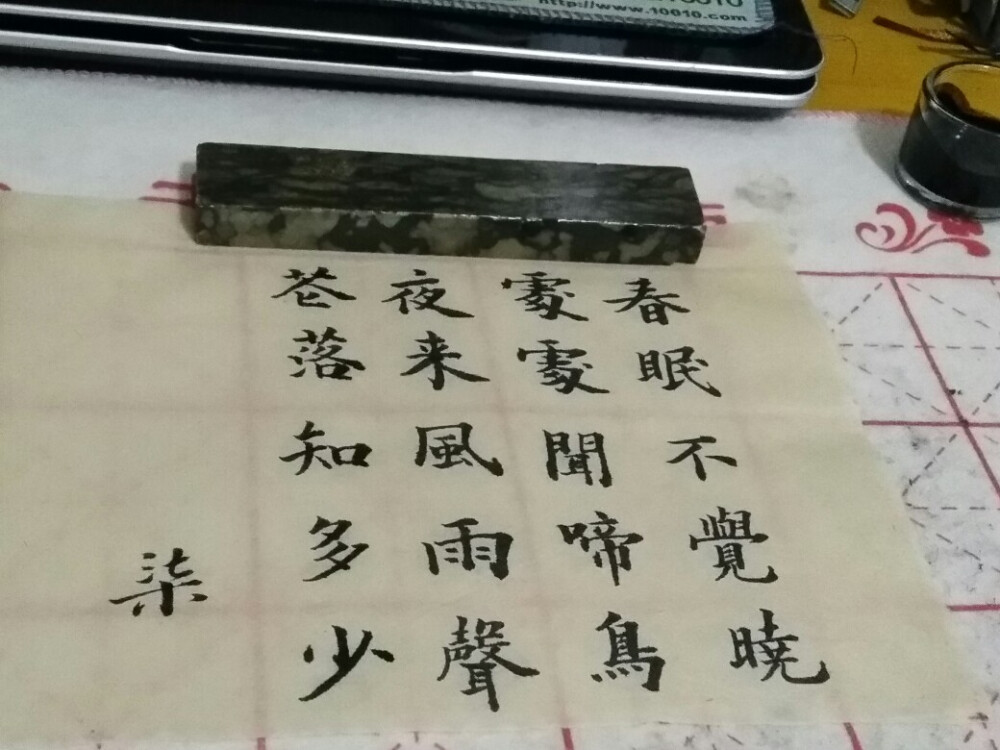 http://www.10010.com
春眠不覺曉
處處聞啼鳥
夜来風雨聲
苍落知多少
柒